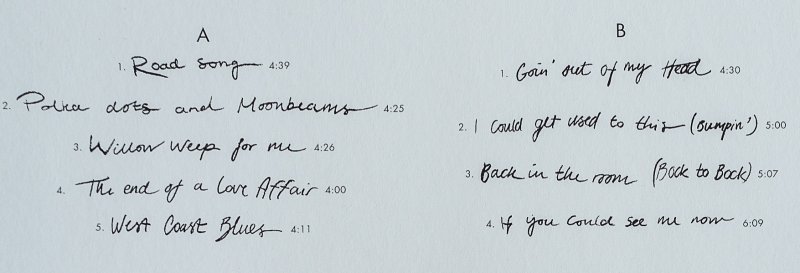 A
1. Road Song 4:39
2. Polka dots and Moonbeams 4:25
3. Willow Weep for me 4:26
4. The end of a Love Affair 4:00
5. West Coast Blues 4:11
B
1. Goin' out of my Head 4:30
2. I could get used to this (Bumpin') 5:00
3. Back in the room (Back to Back) 5:07
4. If you could see me now 6:09